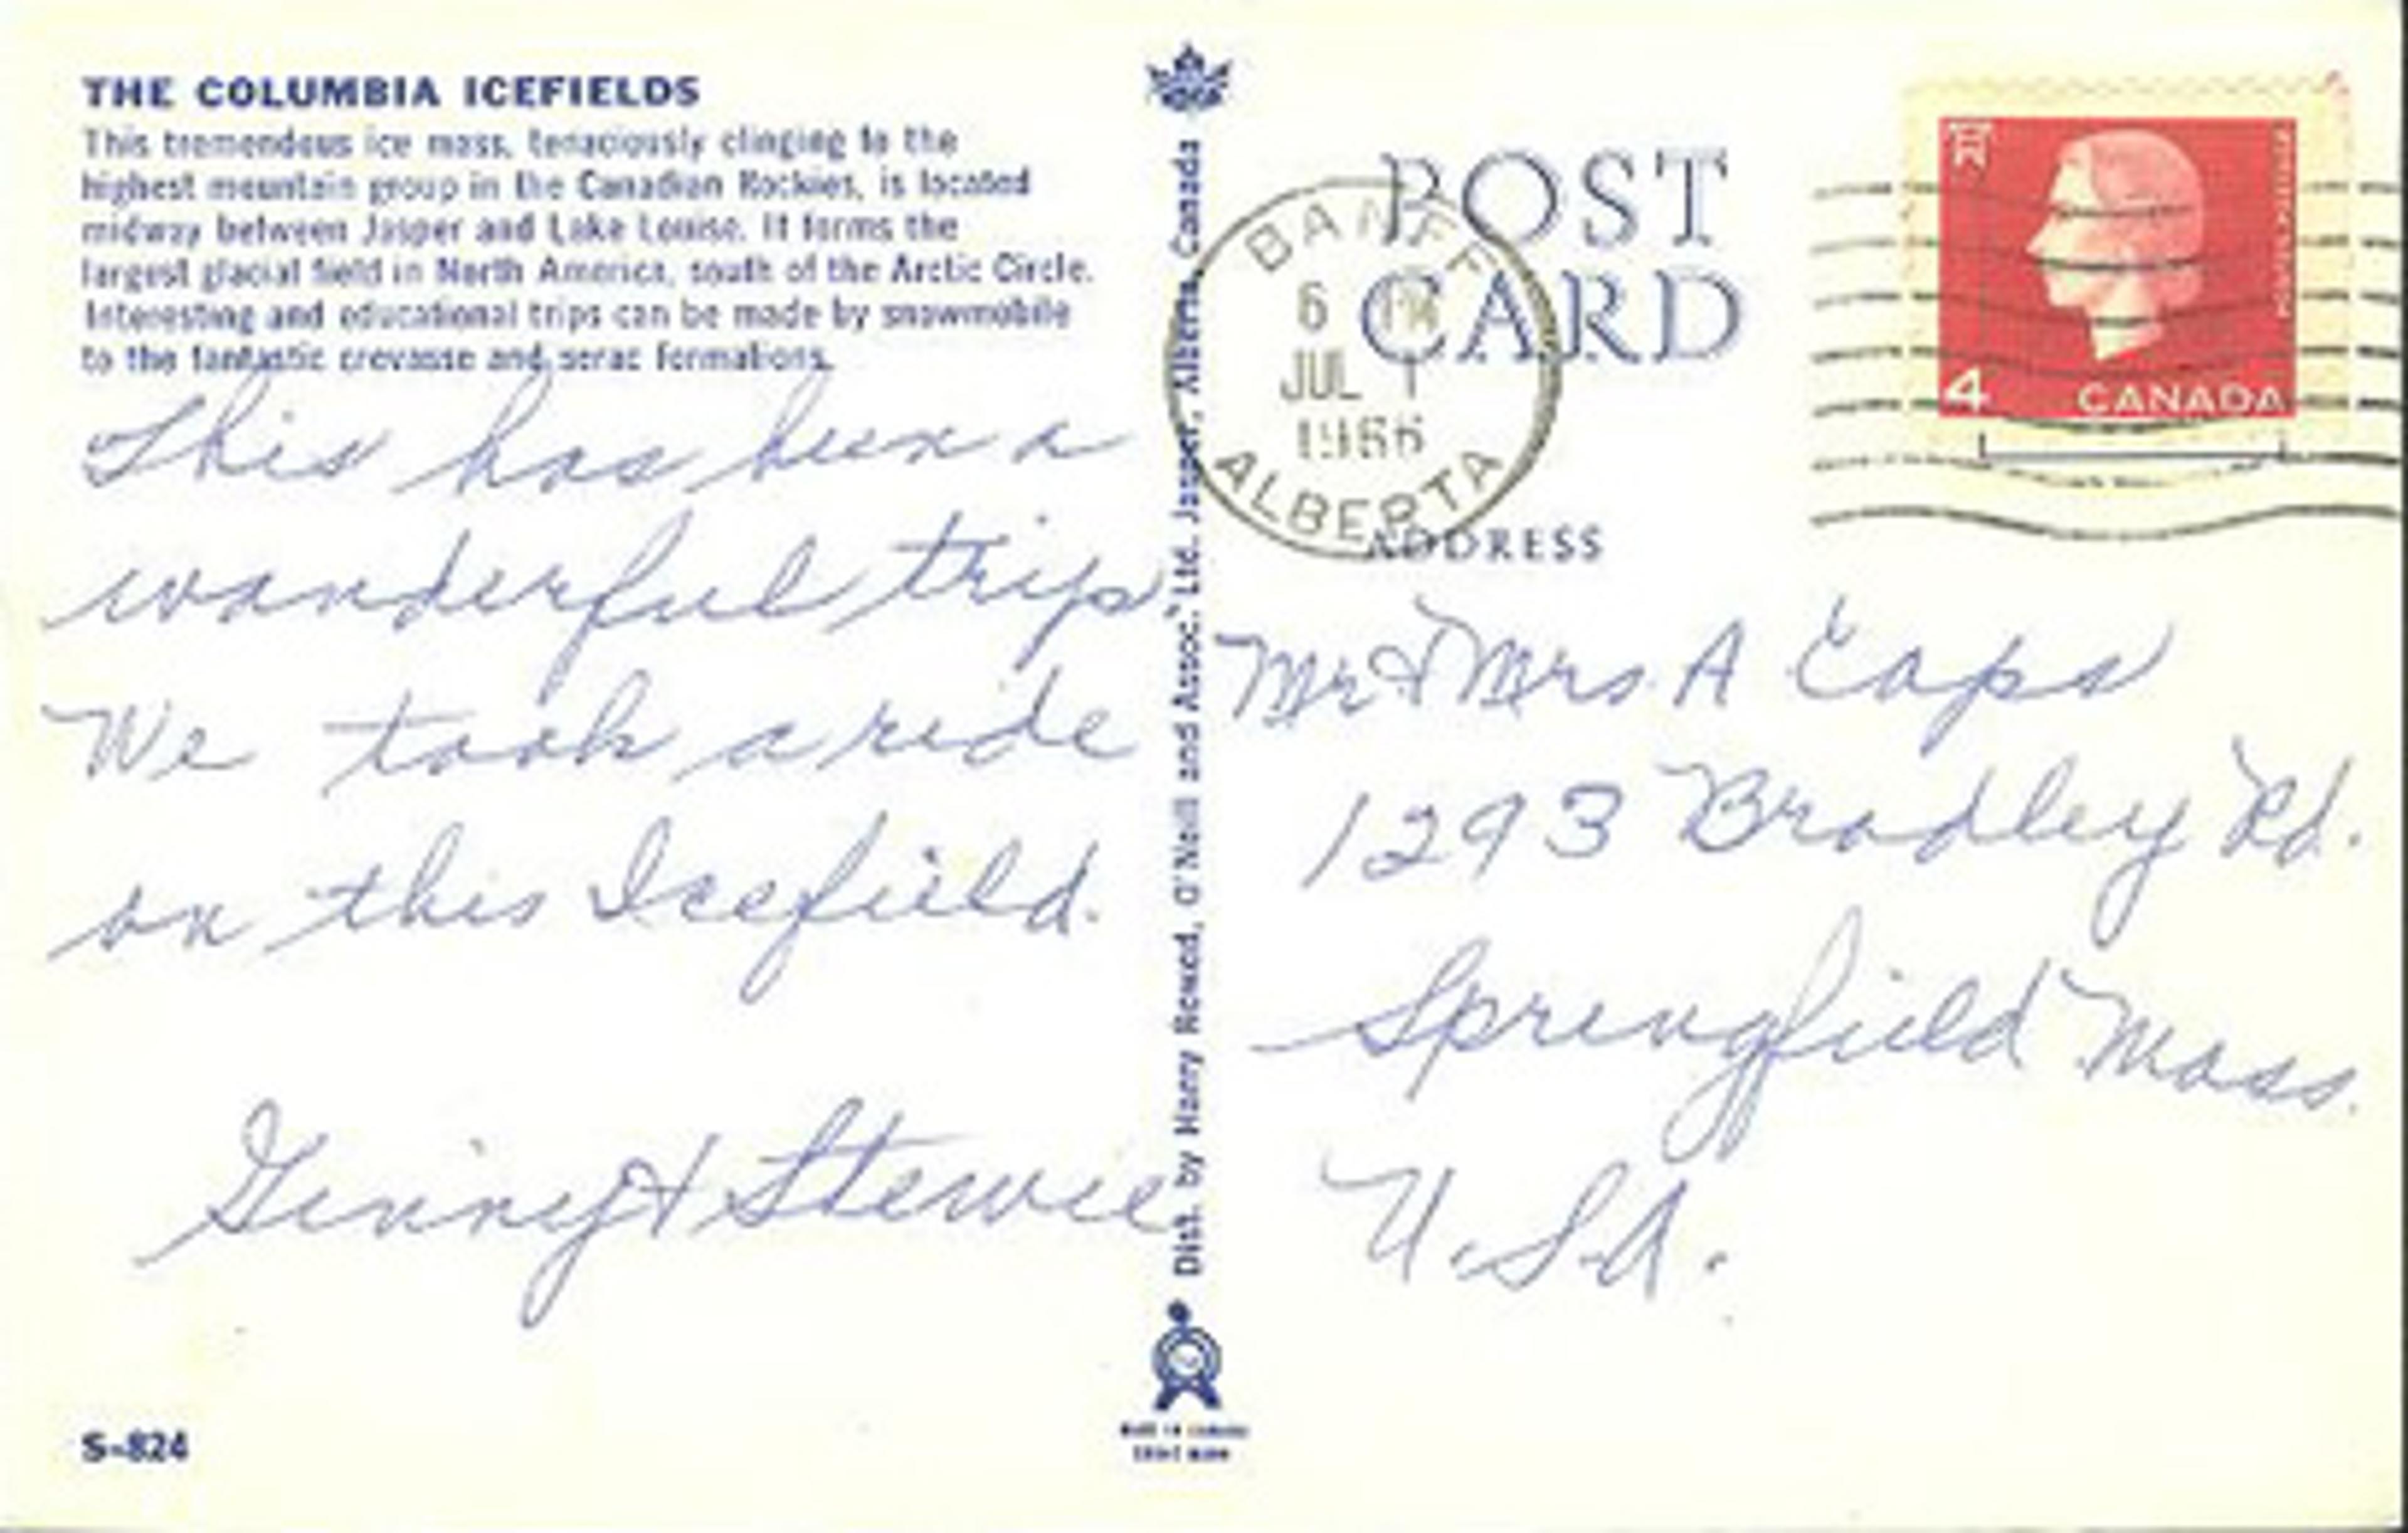 THE COLUMBIA ICEFIELDS
This tremendous ice mass, tenaciously clinging to the
highest mountain group in the Canadian Rockies, is located
midway between Jasper and Lake Louise. It forms the
largest glacial field in North America, south of the Arctic Circle.
Interesting and educational trips can be made by snowmobile
to the fantastic crevasse and serac formations.
This has been a
wonderful trip
We took a ride
on this Icefield.
Ginny & Stewie
S-824
Dist. by Harry Rowed, O'Neill and Assoc. Ltd. Jasper, Alberta, Canada
MADE IN CANADA
POST
CARD
ADDRESS
BANFF
6 PM
JUL 1
1966
ALBERTA
4 CANADA
Mr & Mrs A Caps
1293 Bradley Rd.
Springfield Mass.
U.S.A.